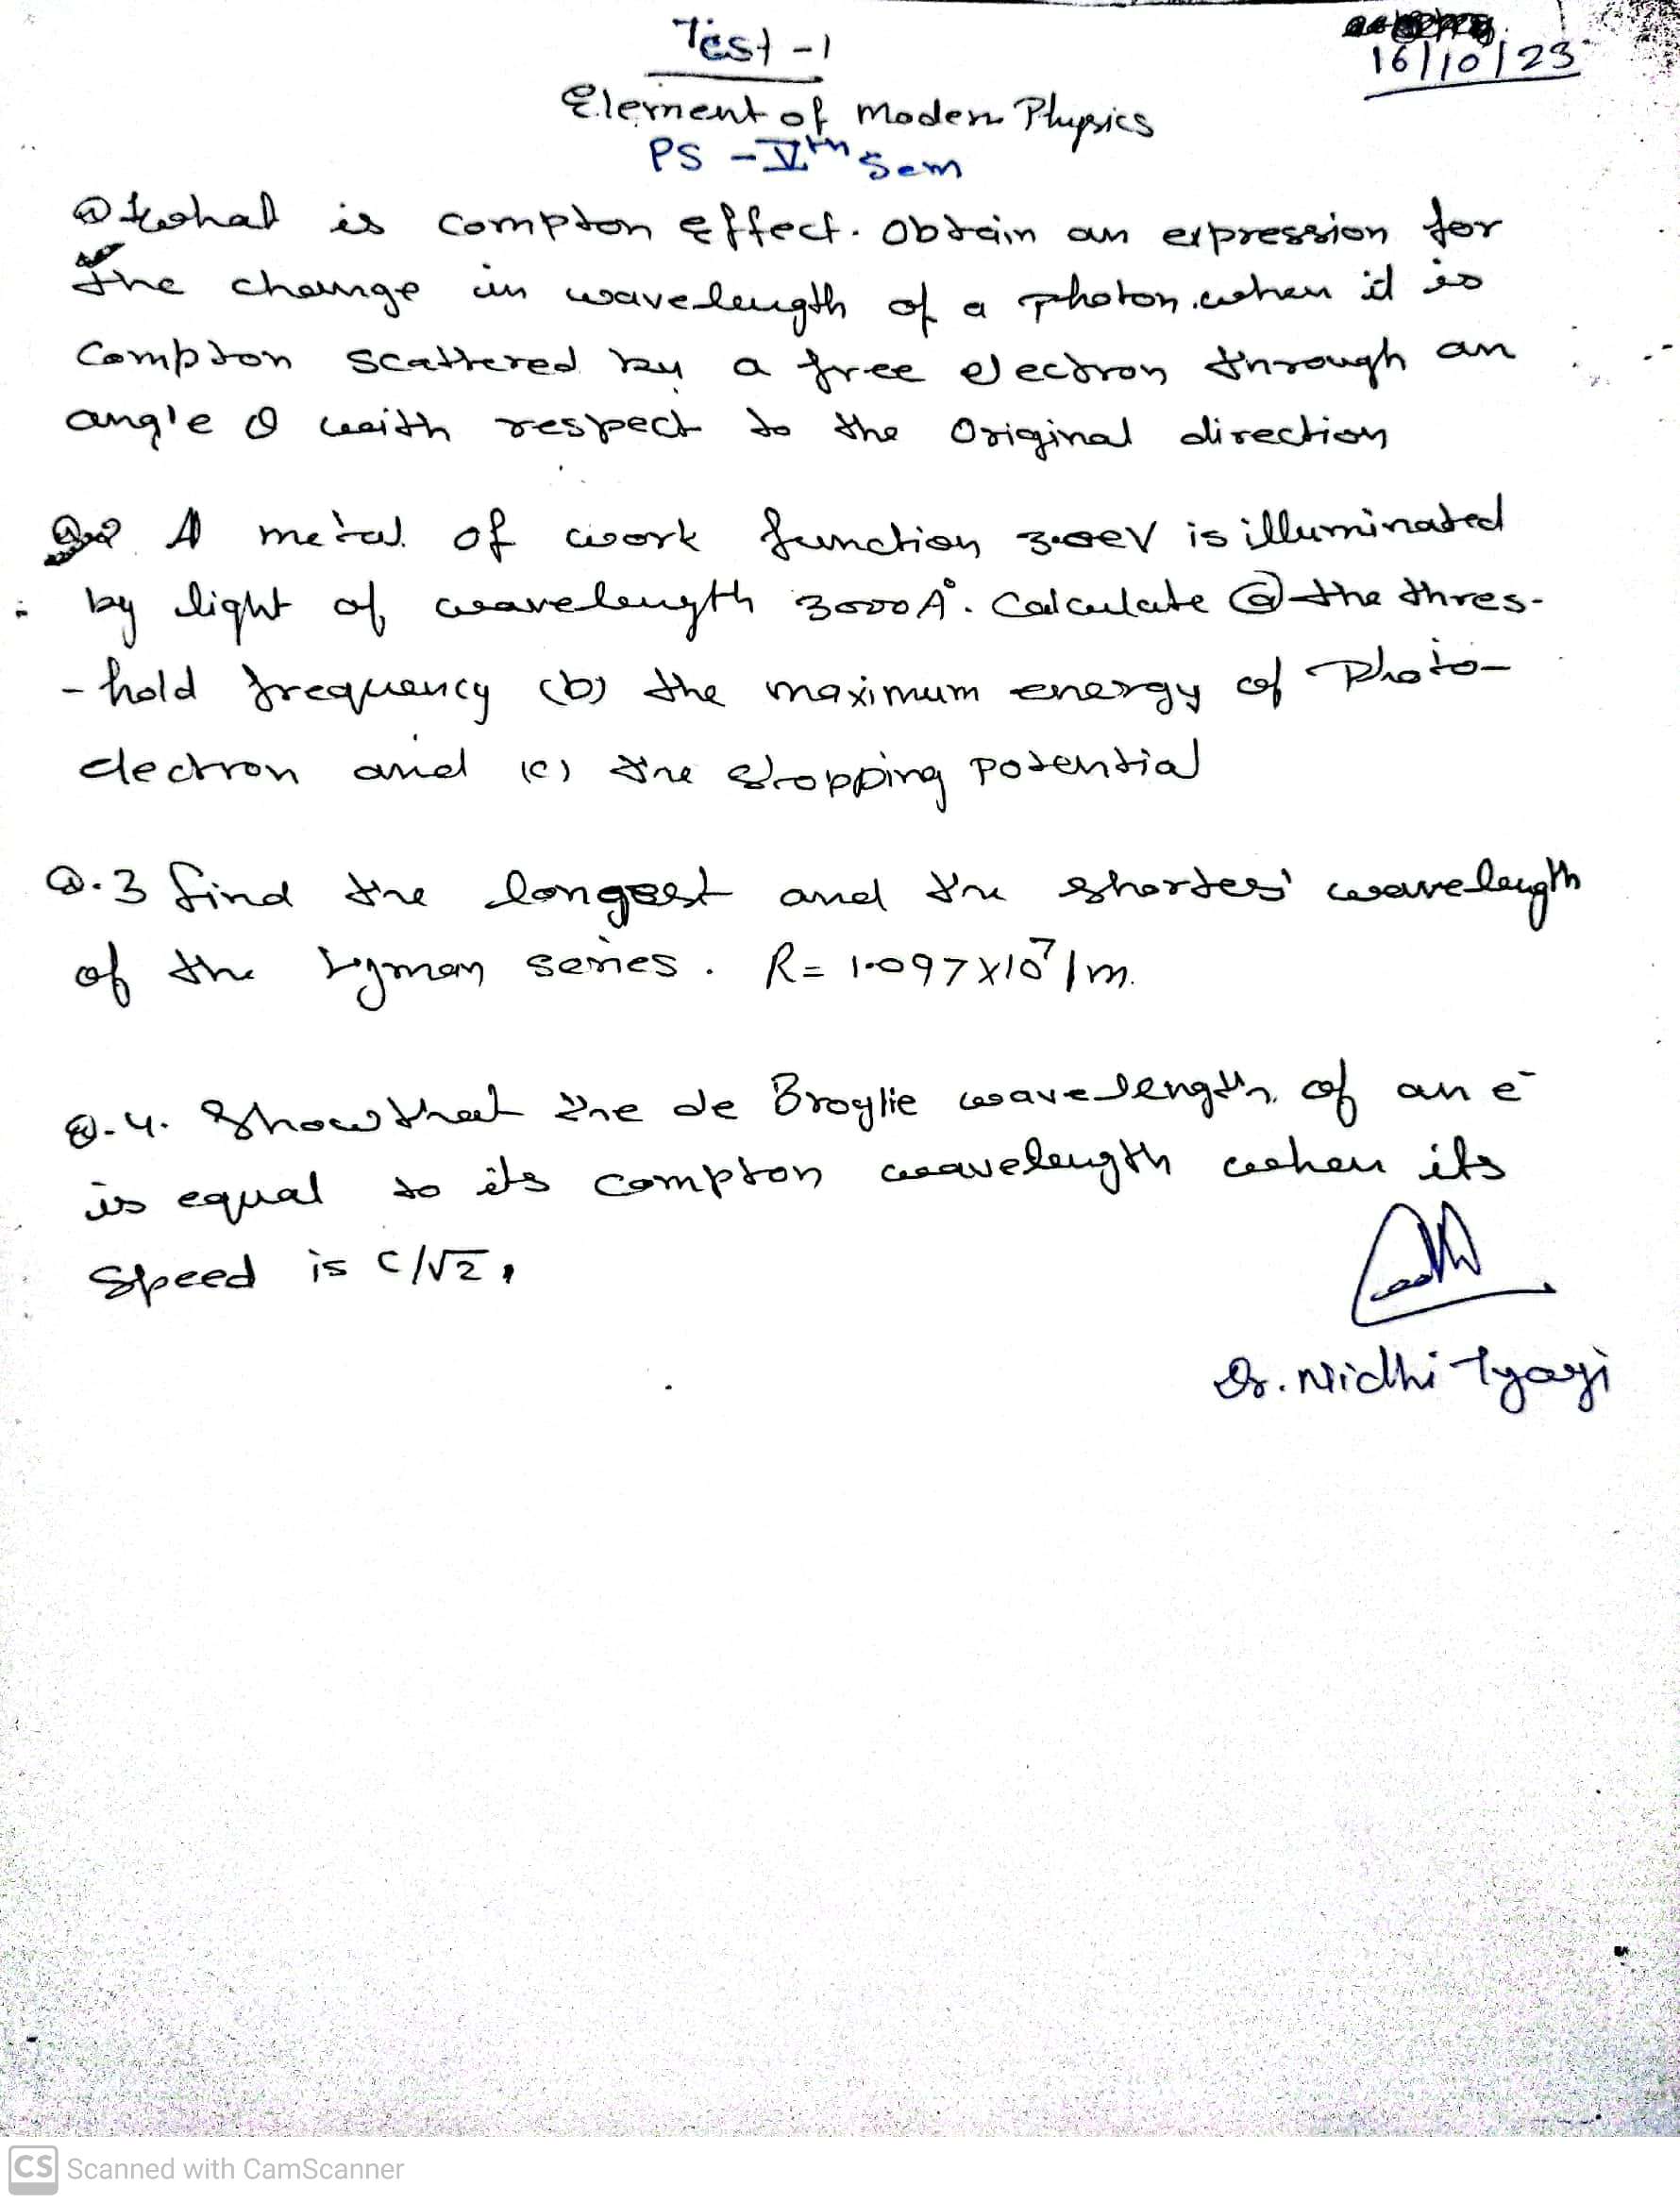 Test -1
16/10/23
Element of Modern Physics
PS - Vth Sem
Q what is compton effect. Obtain an expression for
the change in wavelength of a photon when it is
Compton scattered by a free electron through an
angle θ with respect to the Original direction
Q.2 A metal of work function 3.0eV is illuminated
by light of wavelength 3000 A°. Calculate (a) the thres-
- hold frequency (b) the maximum energy of Photo-
electron and (c) the stopping potential
Q.3 find the longest and the shortest wavelength
of the Lyman series. R = 1.097 X 10⁷ / m.
Q.4. Show that the de Broglie wavelength of an e⁻
is equal to its compton wavelength when its
Speed is c/√2.
Dr. Nidhi Tyagi
CS Scanned with CamScanner